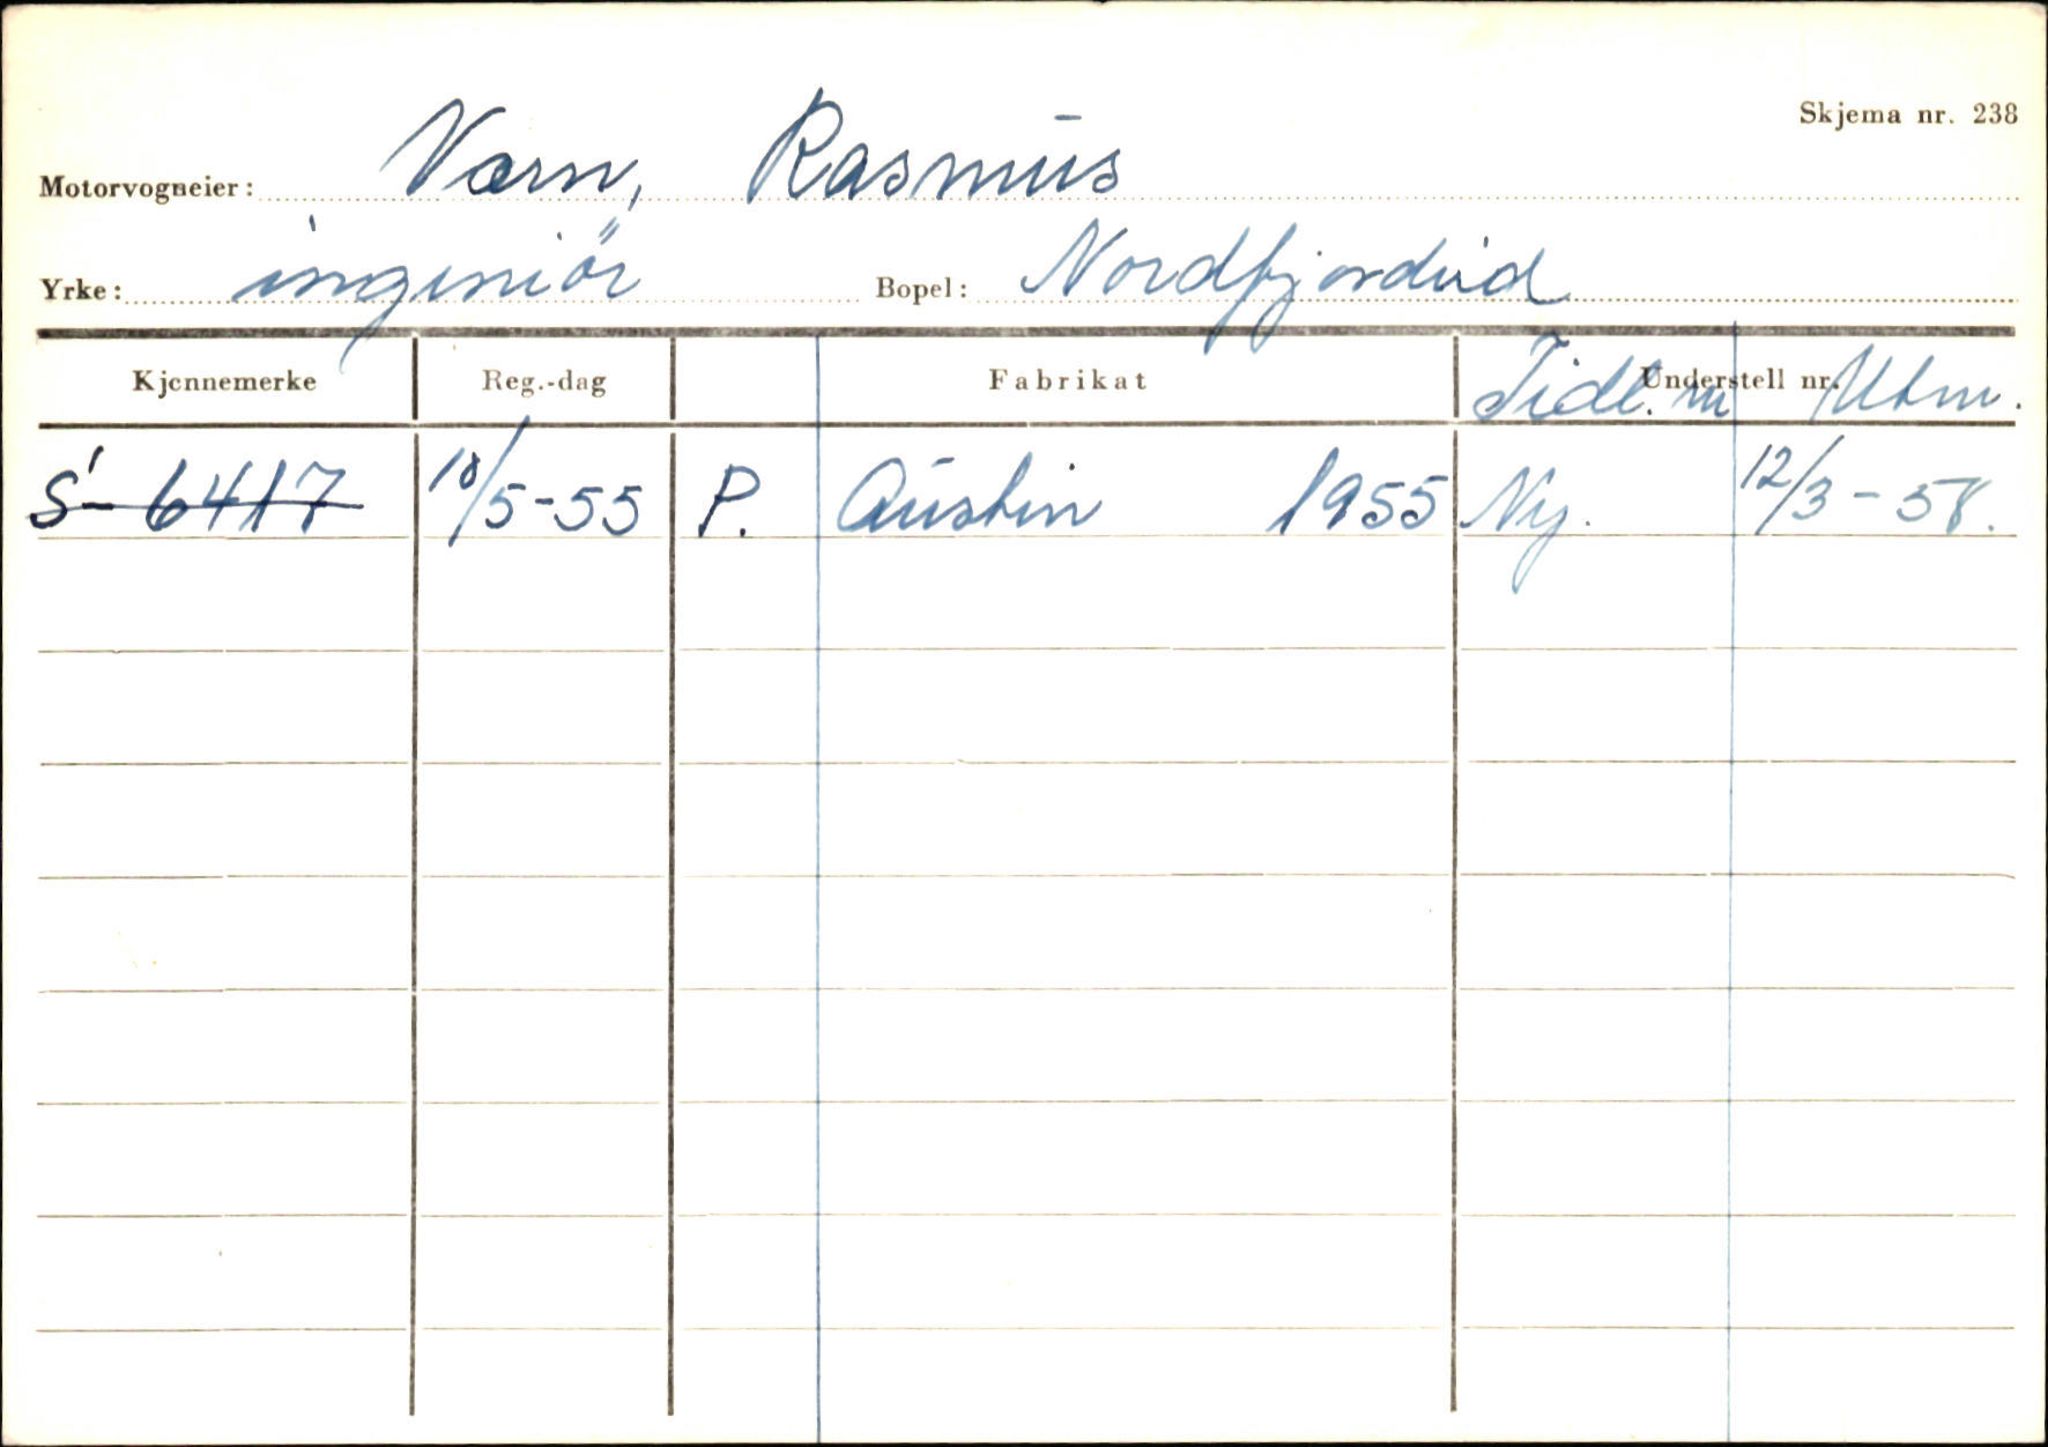 Skjema nr. 238
Motorvogneier: Værn, Rasmus
Yrke: ingeniör Bopel: Nordfjordeid
Kjennemerke Reg.-dag Fabrikat Understell nr. Tidl. nr Utm.
S-6417 18/5-55 P. Austin 1955 Ny. 12/3-58.